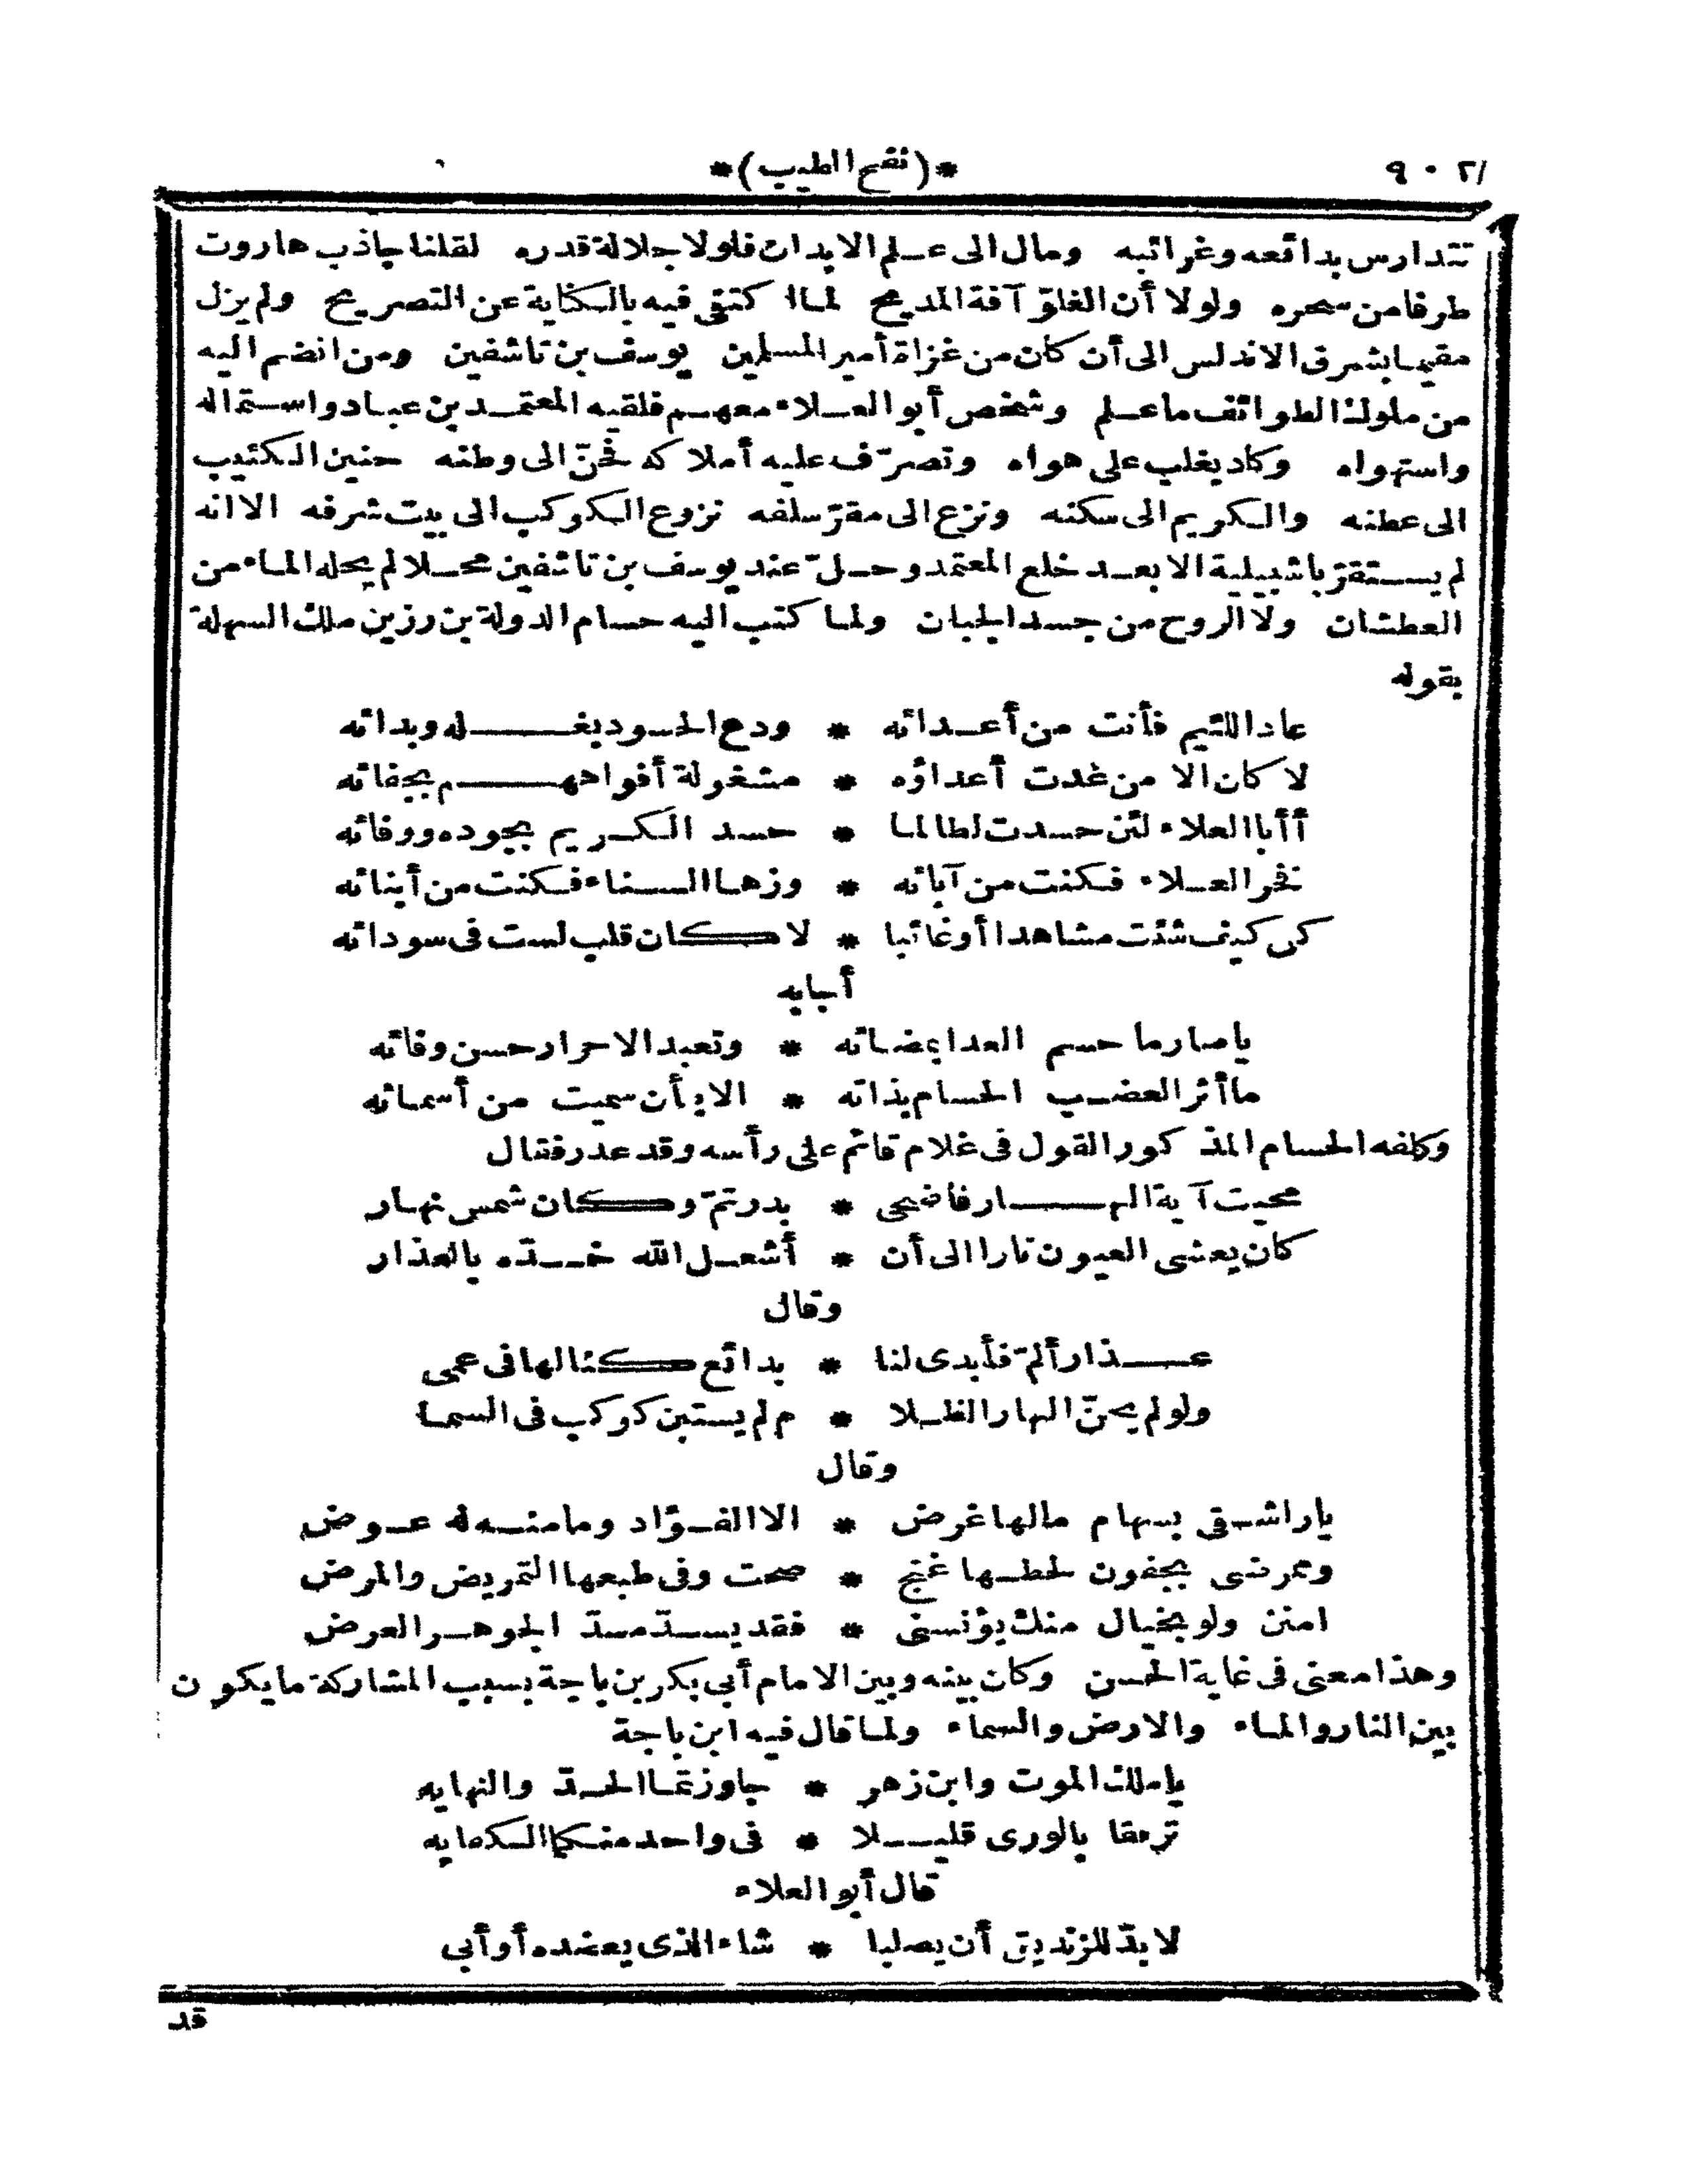 ٩٠٢ *(نفح الطيب)*
تتدارس بدائعه وغرائبه ومال الى علم الابدان فلولا جلالة قدره لقلنا جاذب هاروت
طرفا من سحره ولولا أن الغلو آفة المديح لما اكتفى فيه بالكناية عن التصريح ولم يزل
مقيما بشرق الاندلس الى أن كان من غزاة أمير المسلمين يوسف بن تاشفين ومن انضم اليه
من ملوك الطوائف ما علم وشخص أبو العلاء معهم فلقيه المعتمد بن عباد واستماله
واستهواه وكاد يغلب على هواه وتصرّف عليه أملاكه فحنّ الى وطنه حنين الكئيب
الى عطنه والكريم الى سكنه ونزع الى مقرّ سلفه نزوع الكوكب الى بيت شرفه الا انه
لم يستقرّ باشبيلية الا بعد خلع المعتمد وحلّ عند يوسف بن تاشفين محلا لم يحله الماء من
العطشان ولا الروح من جسد الجبان ولما كتب اليه حسام الدولة بن رزين ملك السهلة
بقوله
عاد اللئيم فأنت من أعدائه * ودع الحسود بغله وبدائه
لا كان الا من غدت أعداؤه * مشغولة أفواههم بجفائه
أأبا العلاء لئن حسدت لطالما * حسد الكريم بجوده ووفائه
فخر العلاء فكنت من آبائه * وزها السناء فكنت من أبنائه
كن كيف شئت مشاهدا أو غائبا * لا كان قلب لست فى سودائه
أجابه
يا صارما حسم العدا بمضائه * وتعبد الاحرار حسن وفائه
ما أثر العضب الحسام بذاته * الا بأن سميت من أسمائه
وكلفه الحسام المذكور القول فى غلام قائم على رأسه وقد عذر فقال
محيت آية النهار فاضحى * بدر تمّ وكان شمس نهار
كان يعشى العيون نارا الى أن * أشعل الله خدّه بالعذار
وقال
عذار ألمّ فأبدى لنا * بدائع كنا لها فى عمى
ولو لم يجنّ النهار الظلا * م لم يستبن كوكب فى السما
وقال
يا راشقى بسهام ما لها غرض * الا الفؤاد وما منه له عوض
وممرضى بجفون لحظها غنج * صحت وفى طبعها التمريض والمرض
امنن ولو بخيال منك يؤنسنى * فقد يسدّ مسدّ الجوهر العرض
وهذا معنى فى غاية الحسن وكان بينه وبين الامام أبى بكر بن باجة بسبب المشاركة ما يكون
بين النار والماء والارض والسماء ولما قال فيه ابن باجة
يا ملك الموت وابن زهر * جاوزتما الحدّ والنهايه
ترفقا بالورى قليلا * فى واحد منكما الكفايه
قال أبو العلاء
لا بدّ للزنديق أن يصلبا * شاء الذى يعضده أو أبى
قد